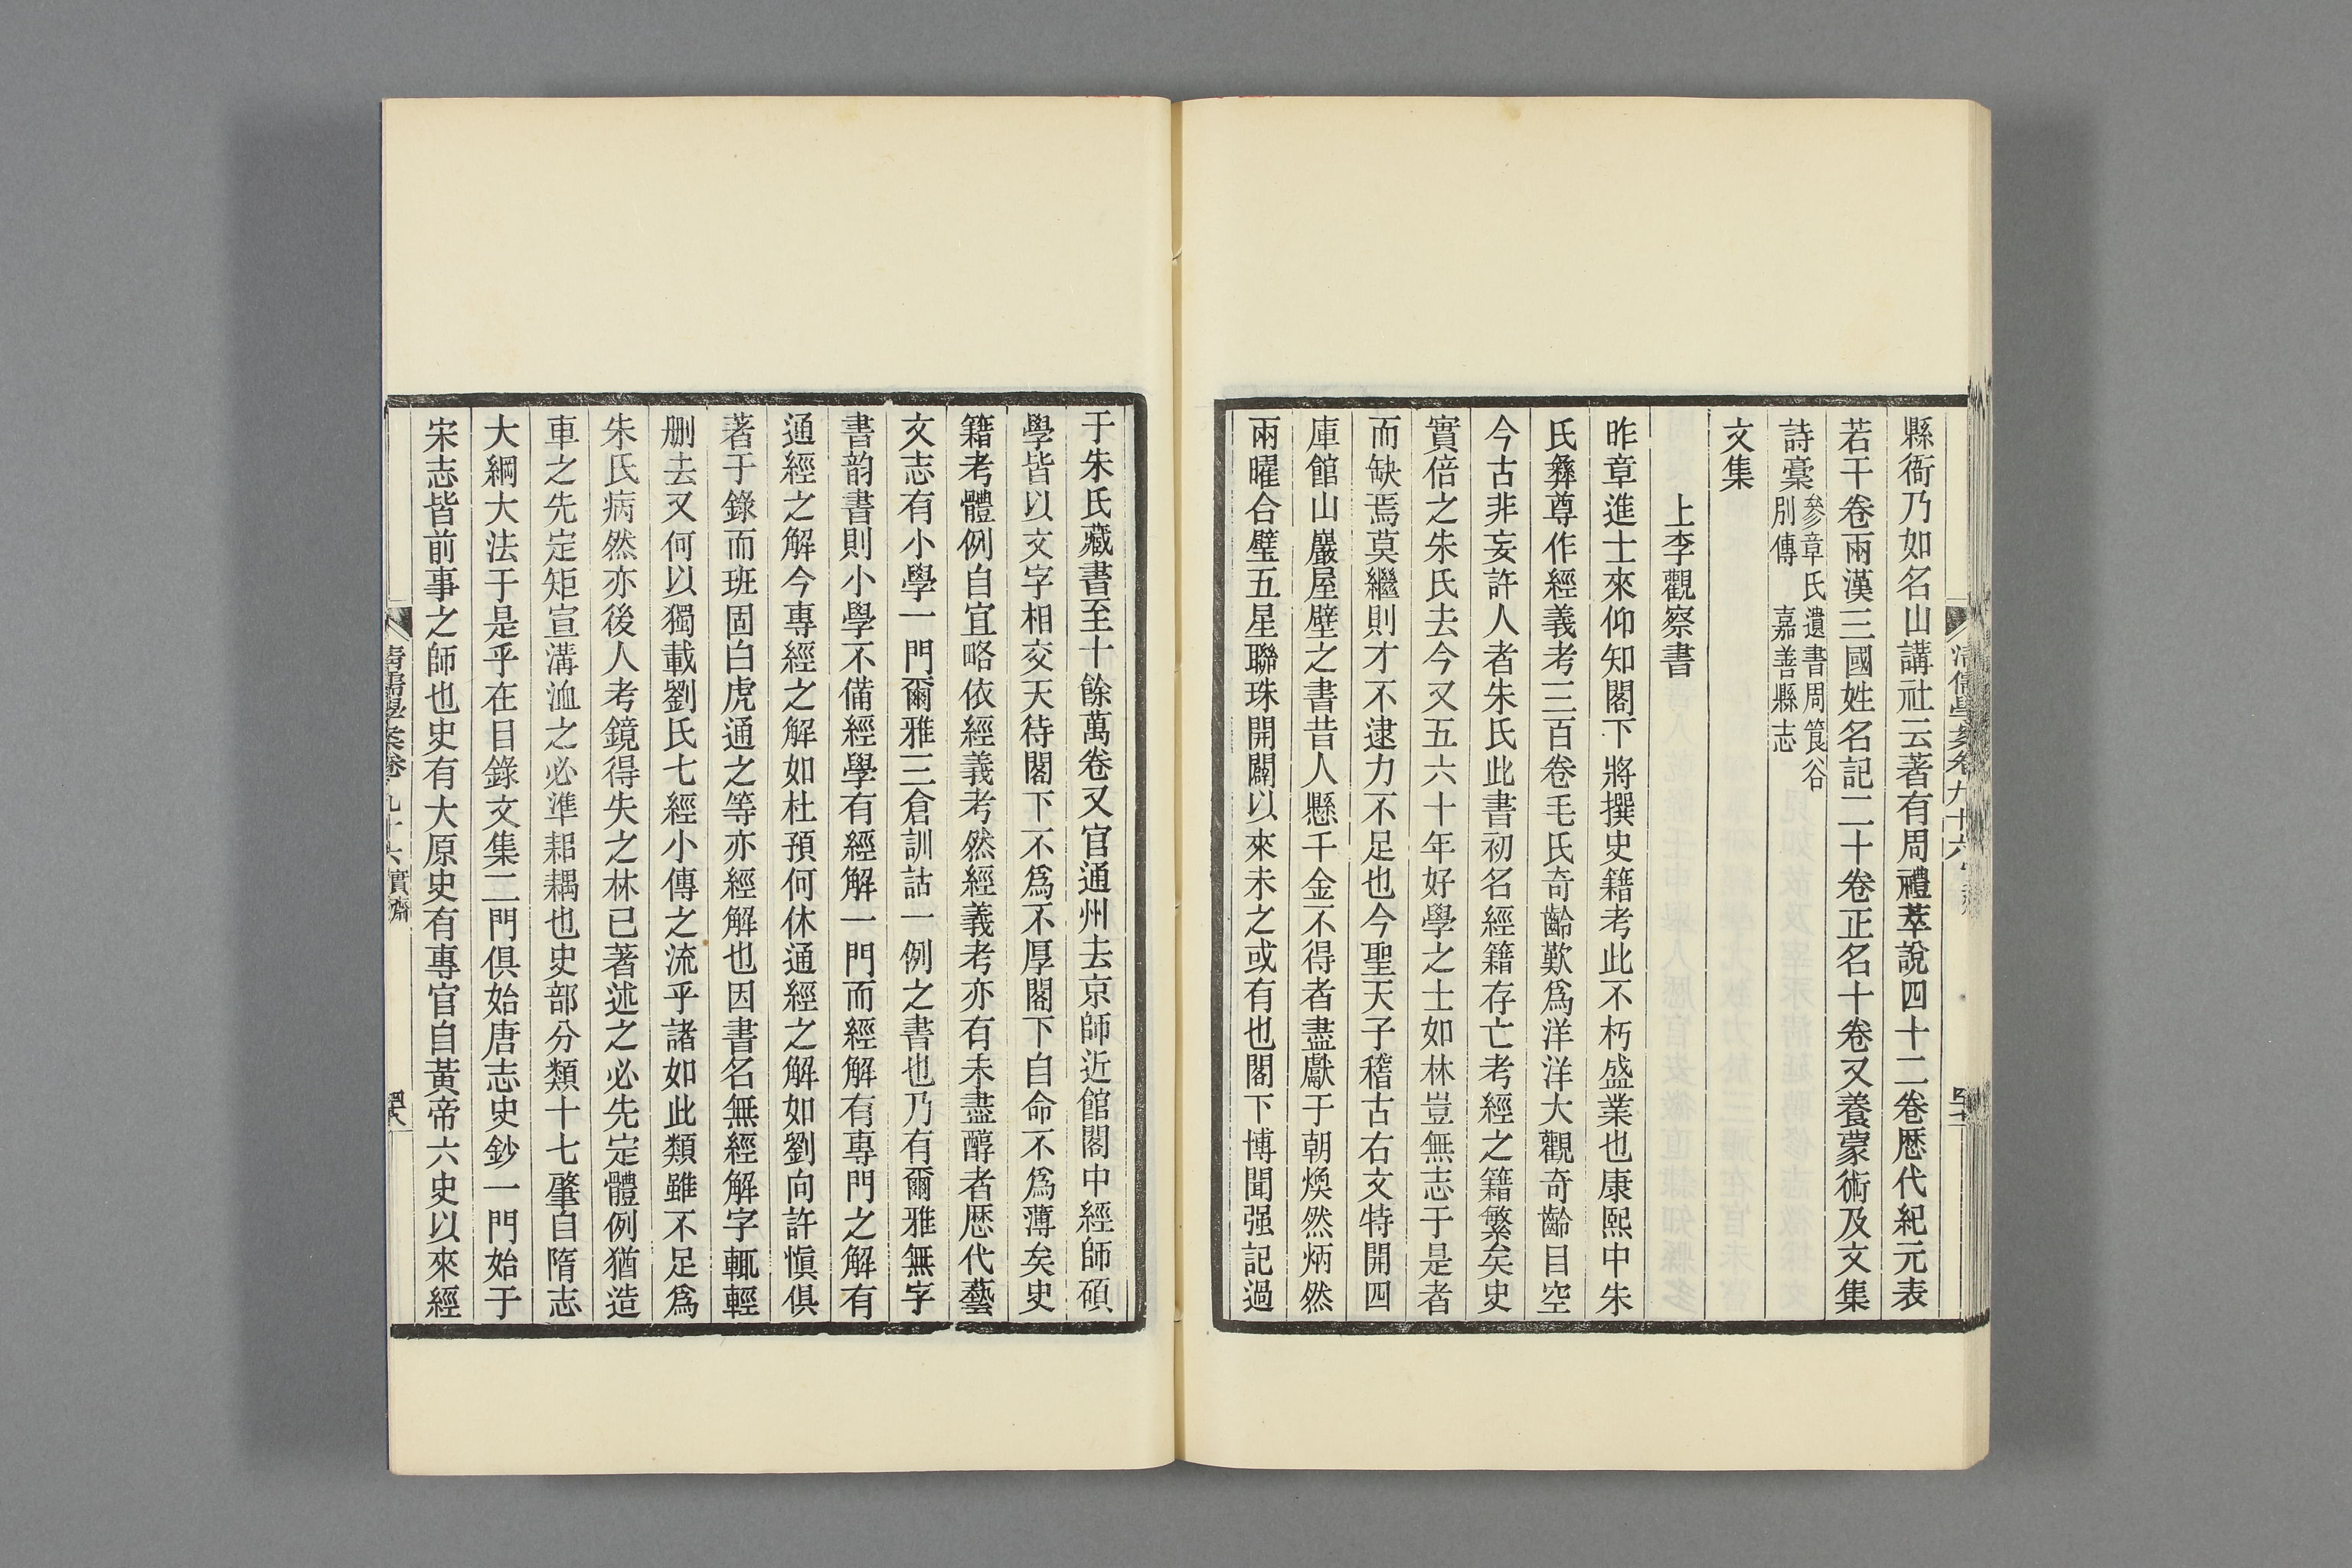 縣衙乃如名山講社云著有周禮萃說四十二卷歷代紀元表
若干卷兩漢三國姓名記二十卷正名十卷又養蒙術及文集
詩稾參章氏遺書周筤谷
別傳 嘉善縣志
文集
上李觀察書
昨章進士來仰知閣下將撰史籍考此不朽盛業也康熙中朱
氏彝尊作經義考三百卷毛氏奇齡歎爲洋洋大觀奇齡目空
今古非妄許人者朱氏此書初名經籍存亡考經之籍繁矣史
實倍之朱氏去今又五六十年好學之士如林豈無志于是者
而缺焉莫繼則才不逮力不足也今聖天子稽古右文特開四
庫館山巖屋壁之書昔人懸千金不得者盡獻于朝煥然炳然
兩曜合璧五星聯珠開闢以來未之或有也閣下博聞强記過
于朱氏藏書至十餘萬卷又官通州去京師近館閣中經師碩
學皆以文字相交天待閣下不爲不厚閣下自命不爲薄矣史
籍考體例自宜略依經義考然經義考亦有未盡醇者歷代藝
文志有小學一門爾雅三倉訓詁一例之書也乃有爾雅無字
書韵書則小學不備經學有經解一門而經解有專門之解有
通經之解今專經之解如杜預何休通經之解如劉向許愼俱
著于錄而班固白虎通之等亦經解也因書名無經解字輒輕
删去又何以獨載劉氏七經小傳之流乎諸如此類雖不足爲
朱氏病然亦後人考鏡得失之林已著述之必先定體例猶造
車之先定矩宣溝洫之必準耜耦也史部分類十七肇自隋志
大綱大法于是乎在目錄文集二門俱始唐志史鈔一門始于
宋志皆前事之師也史有大原史有專官自黃帝六史以來經
清儒學案卷九十六 實齋